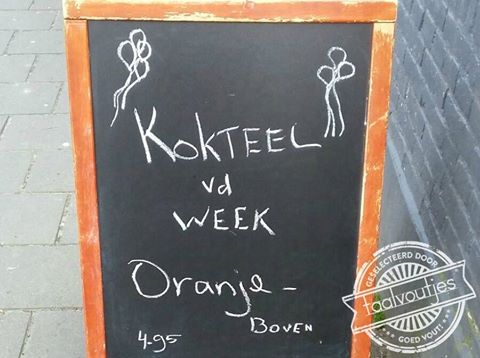 KOKTEEL
vd
WEEK
Oranje-
BOVEN
4-95
GESELECTEERD DOOR
taalvoutjes
GOED VOUT!